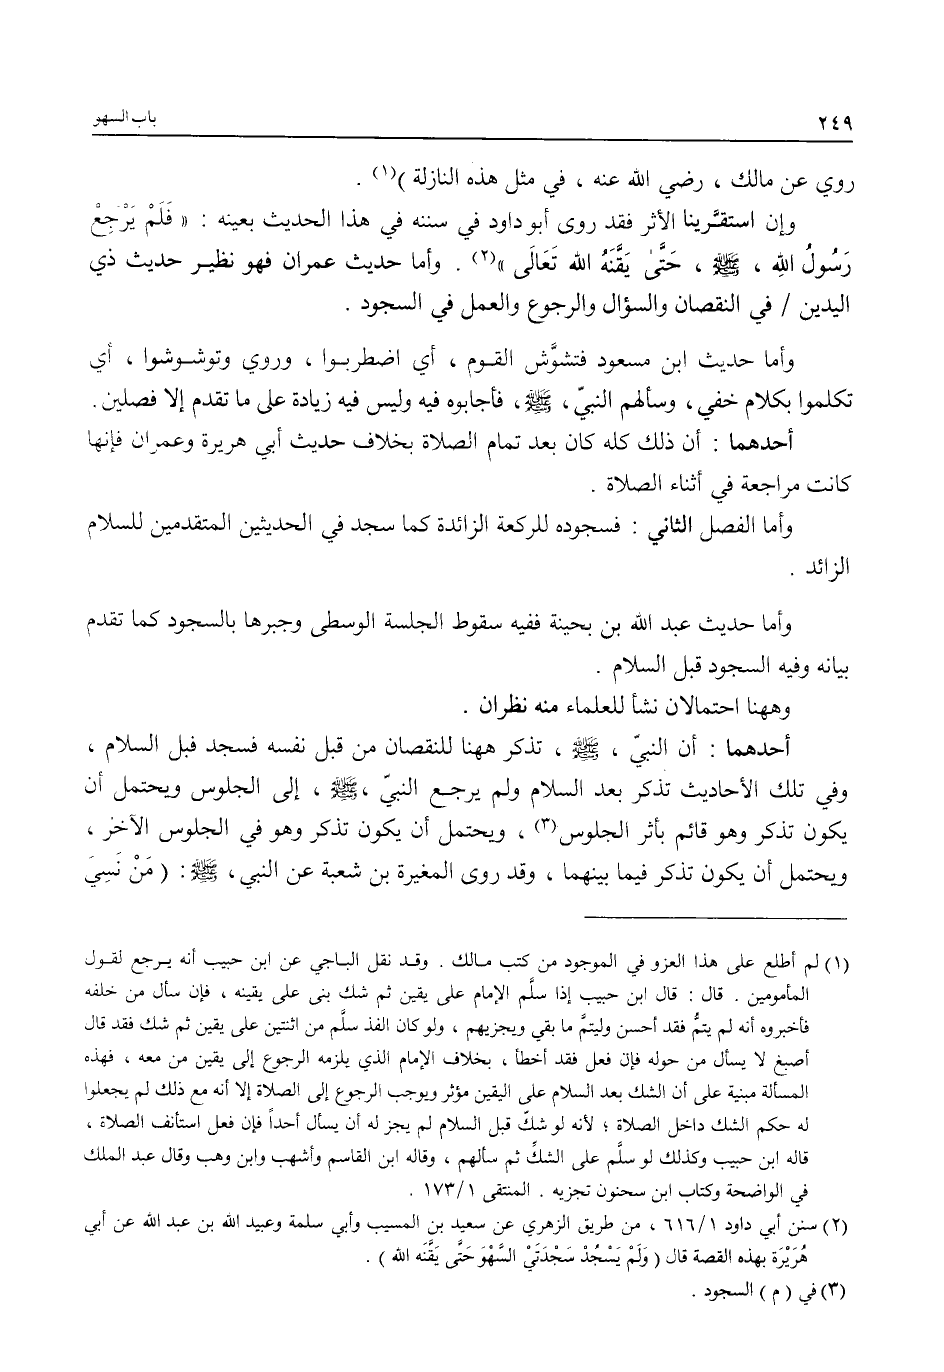 ٢٤٩
باب السهو
روي عن مالك ، رضي الله عنه ، في مثل هذه النازلة )(١) .
وإن استقرينا الأثر فقد روى أبو داود في سننه في هذا الحديث بعينه : « فَلَمْ يَرْجِعْ
رَسُولُ اللهِ ، ﷺ ، حَتَّىٰ يَقَّنَهُ الله تَعَالَى »(٢) . وأما حديث عمران فهو نظير حديث ذي
اليدين / في النقصان والسؤال والرجوع والعمل في السجود .
وأما حديث ابن مسعود فتشوَّش القوم ، أي اضطربوا ، وروي وتوشوشوا ، أي
تكلموا بكلام خفي ، وسألهم النبيّ ، ﷺ ، فأجابوه فيه وليس فيه زيادة على ما تقدم إلا فصلين .
أحدهما : أن ذلك كله كان بعد تمام الصلاة بخلاف حديث أبي هريرة وعمران فإنها
كانت مراجعة في أثناء الصلاة .
وأما الفصل الثاني : فسجوده للركعة الزائدة كما سجد في الحديثين المتقدمين للسلام
الزائد .
وأما حديث عبد الله بن بحينة ففيه سقوط الجلسة الوسطى وجبرها بالسجود كما تقدم
بيانه وفيه السجود قبل السلام .
وههنا احتمالان نشأ للعلماء منه نظران .
أحدهما : أن النبيّ ، ﷺ ، تذكر ههنا للنقصان من قبل نفسه فسجد قبل السلام ،
وفي تلك الأحاديث تذكر بعد السلام ولم يرجع النبيّ ، ﷺ ، إلى الجلوس ويحتمل أن
يكون تذكر وهو قائم بأثر الجلوس(٣) ، ويحتمل أن يكون تذكر وهو في الجلوس الآخر ،
ويحتمل أن يكون تذكر فيما بينهما ، وقد روى المغيرة بن شعبة عن النبي ، ﷺ : ( مَنْ نَسِيَ
(١) لم أطلع على هذا العزو في الموجود من كتب مالك . وقد نقل الباجي عن ابن حبيب أنه يرجع لقول
المأمومين . قال : قال ابن حبيب إذا سلَّم الإمام على يقين ثم شك بنى على يقينه ، فإن سأل من خلفه
فأخبروه أنه لم يتمُّ فقد أحسن وليتمَّ ما بقي ويجزيهم ، ولو كان الفذ سلَّم من اثنتين على يقين ثم شك فقد قال
أصبغ لا يسأل من حوله فإن فعل فقد أخطأ ، بخلاف الإمام الذي يلزمه الرجوع إلى يقين من معه ، فهذه
المسألة مبنية على أن الشك بعد السلام على اليقين مؤثر ويوجب الرجوع إلى الصلاة إلا أنه مع ذلك لم يجعلوا
له حكم الشك داخل الصلاة ؛ لأنه لو شكّ قبل السلام لم يجز له أن يسأل أحداً فإن فعل استأنف الصلاة ،
قاله ابن حبيب وكذلك لو سلَّم على الشكِّ ثم سألهم ، وقاله ابن القاسم وأشهب وابن وهب وقال عبد الملك
في الواضحة وكتاب ابن سحنون تجزيه . المنتقى ١٧٣/١ .
(٢) سنن أبي داود ٦١٦/١ ، من طريق الزهري عن سعيد بن المسيب وأبي سلمة وعبيد الله بن عبد الله عن أبي
هُرَيْرَة بهذه القصة قال ( وَلَمْ يَسْجُدْ سَجْدَتَيْ السَّهْوَ حَتَّى يَقَّنَه الله ) .
(٣) في ( م ) السجود .